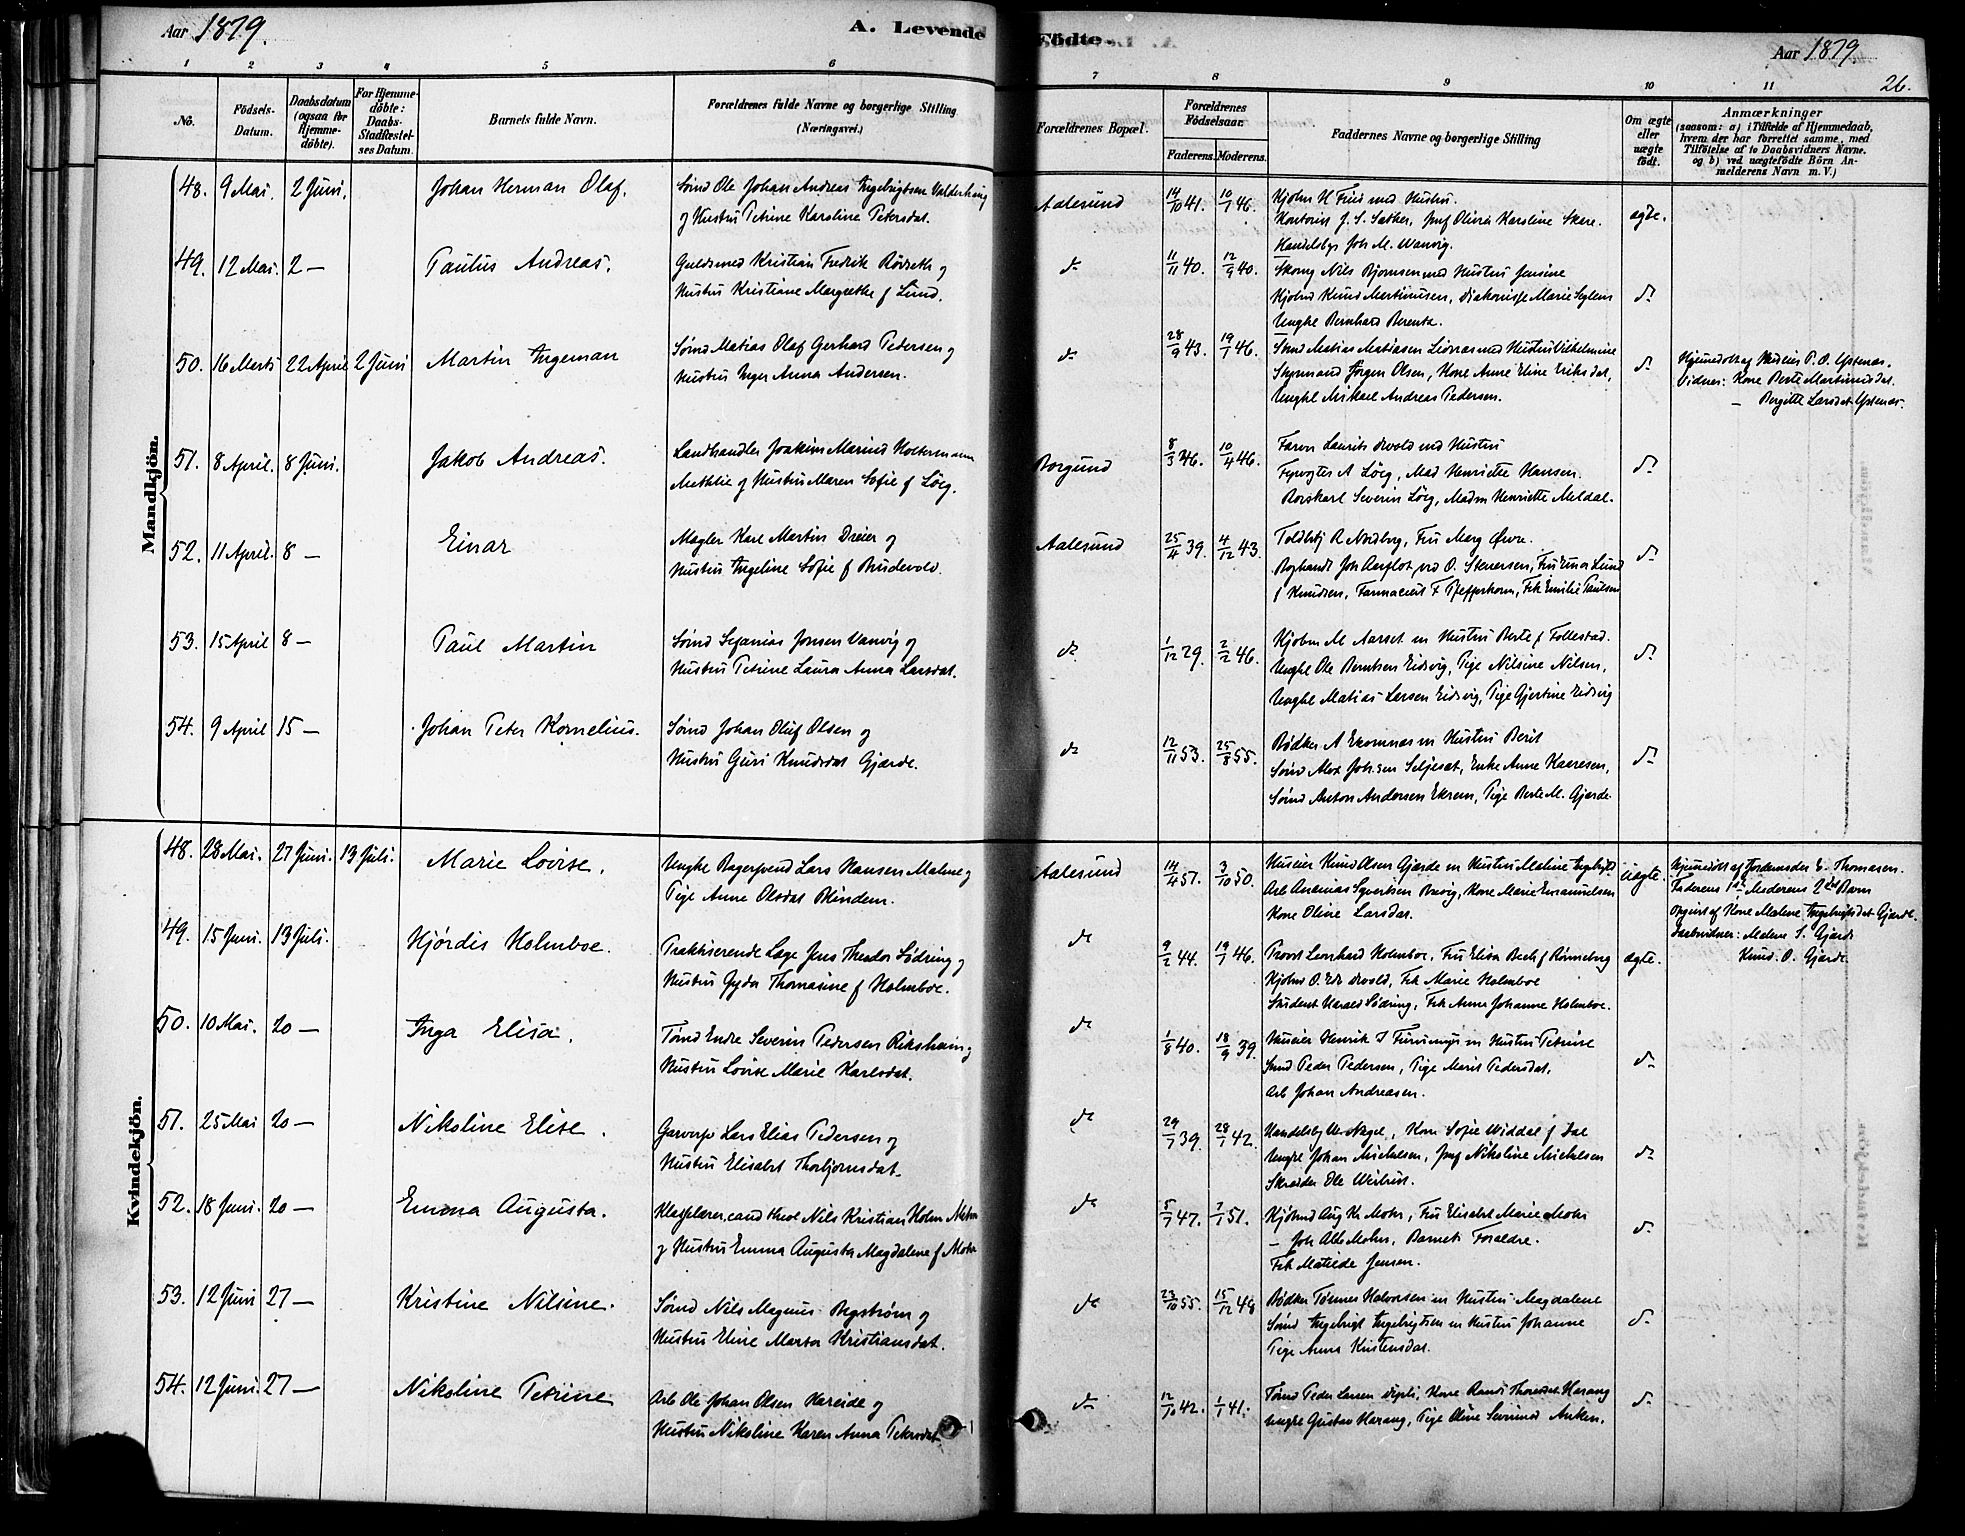 Aar 1879.
A. Levende
Födte.
Aar 1879.
26.
1 2 3 4 5 6 7 8 9 10 11
No.
Födsels-Datum.
Daabsdatum (ogsaa for Hjemme-döbte).
For Hjemme-döbte: Daabs-Stadfæstel-ses Datum.
Barnets fulde Navn.
Forældrenes fulde Navne og borgerlige Stilling (Næringsvei.)
Forældrenes Bopæl.
Forældrenes Födselsaar.
Faderens. Moderens.
Faddernes Navne og borgerlige Stilling
Om ægte eller uægte födt.
Anmærkninger
(saasom: a) i Tilfælde af Hjemmedaab, hvem der har forrettet samme, med Tilföielse af to Daabsvidners Navne. og b) ved uægtefödte Börn An-melderens Navn m. V.)
Mandkjön.
48. 9 Mai. 2 Juni. Johan Herman Olaf. Sømd Ole Johan Andreas Ingebrigtsen Valderhaug
og Hustru Petrine Karoline Petersdat.
Aalesund 14/10 41. 10/1 46. Kjøbm H Friis med Hustru.
Kontorist J. S. Sæther, Jmf Olivia Karoline Skare.
Handelsbgr Joh M. Wanvig.
ægte.
49. 12 Mai. 2 — Paulus Andreas. Guldsmed Kristian Fredrik Rödseth og
Hustru Kristiane Margrethe f Lund.
do 11/11 40. 12/9 40. Skomg Nils Bjørnsen med Hustru Jensine
Kjøbmd Knud Martinusen, Diakonisse Marie
Ungkl Bernhard Berentz.
do
50. 16 Marts 22 April 2 Juni Martin Ingeman Sømd Matias Olaf Gerhard Pedersen og
Hustru Inger Anna Andersen.
do 28/9 43. 19/1 46. Smd Matias Matiasen med Hustru Vilhelmine
Styrmand Jørgen Olsen, Kone Anne Eline Eriksdat,
Ungkl Mikael Andreas Pedersen.
do
Hjemmedøbt af Huseier P. O. Ystenæs.
Vidner: Kone Berte Martinusdat.
— Bergitte Larsdat Ystenæs.
51. 8 April. 8 Juni. Jakob Andreas. Landhandler Joakim Marius Holtermann
Methlie og Hustru Maren Sofie f Löeg.
Borgund 8/3 46. 10/4 46. Farver Laurits Devold med Hustru
Fyrvogter A Löeg, Mad Henriette Hansen.
Severin Löeg, Madm Henriette Meldal.
do
52. 11 April. 8 — Einar Mægler Karl Martin Dreier og
Hustru Ingeline Sofie f Brudevold.
Aalesund 25/4 39. 4/12 43. Toldbtj R Nordberg, Fru Marg Øwre.
Boghandl Joh Aarflot, O. Stenersen, Fru Lund
f Knudsen, Farmaceut F Pfefferkorn, Frk Emilie Paulsen
do
53. 15 April 8 — Paul Martin Sømd Sefanias Jonsen Vanvig og
Hustru Petrine Laura Anna Larsdat.
do. 1/12 29. 2/2 46. Kjøbm M Aarset m Hustru Berte f Follestad.
Ungkl Ole Berntsen Eidsvig, Pige Nilsine Nilsen,
Ungkl Matias Larsen Eidsvig, Pige Gjertine Eidsvig
do
54. 9 April 15 — Johan Peter Kornelius. Sømd Johan Oluf Olsen og
Hustru Guri Knudsdat Gjærde.
do 12/11 53. 25/8 55. Bødker A Ekornæs m Hustru Berit
Sømd Alex Johnsen Seljeset, Enke Anne Kaaresen,
Sømd Anton Andersen Ekrem, Pige Berte M. Gjærde.
do
Kvindekjön.
48. 28 Mai. 27 Juni. 13 Juli. Marie Lovise. Ungke Bagersvend Lars Hansen Malme og
Pige Anne Olsdat Blindem.
Aalesund 14/4 57. 3/10 50. Huseier Knud Olsen Gjærde m Hustru Malene Ingebrigtd
Arb Ananias Syvertsen, Kone Marie Emanuelsen
Kone Oline Larsdat.
uægte.
Hjemmedöbt af Jordemoder E. Thomasen.
Faderens 1ste Moderens 2det Barn
Opgivet af Kone Malene Ingebrigtsdat Gjærde.
Daabsvidner: Malene S. Gjærde
Knud. O. Gjærde
49. 15 Juni. 13 Juli. Hjördis Holmboe. Praktiserende Læge Jens Theodor Södring og
Hustru Gyda Thomasine f Holmboe.
do 9/2 44. 19/1 46. Provst Leonhard Holmboe, Fru Elisa Bech f Rönneberg
Kjøbmd O. Devold, Frk Marie Holmboe
Student Harald Södring, Frk Anne Johanne Holmboe.
ægte.
50. 10 Mai. 20 — Inga Elisa. Tømd Endre Severin Pedersen og
Hustru Lovise Marie Karlsdat.
do 1/8 40. 18/9 39. Huseier Henrik J m Hustru Petrine
Smd Peder Pedersen, Pige Marit Pedersdat,
Arb Johan Andreasen.
do
51. 25 Mai 20 — Nikoline Elise. Garversv Lars Elias Pedersen og
Hustru Elisabet Thorbjørnsdat.
do 29/7 39. 28/1 42. Handelsbg Nagel, Kone Sofie Widdal f Dal
Ungkl Johan Mickelsen, Jmf Nikoline Mickelsen
Skræder Ole
do
52. 18 Juni. 20 — Emma Augusta. Klaselærer, cand theol Nils Kristian Holm Mohn
og Hustru Emma Augusta Magdalene f Mohr
do 5/7 47. 7/1 51. Kjøbmd Aug Mohr, Fru Elisabet Marie Mohr
— Joh Mohn, Barnets Forældre.
Frk Matilde Jensen.
do
53. 12 Juni 27 — Kristine Nilsine. Sømd Nils Magnus Bergstrøm og
Hustru Eline Marta Kristiansdat.
do 23/10 55. 15/12 48 Bødker Tønnes Halvorsen m Hustru Magdalene
Sømd Ingebrigt Ingebrigtsen m Hustru Johanne
Pige Anna Kristensdat.
do
54. 12 Juni. 27 — Nikoline Petrine Arb Ole Johan Olsen Hareide og
Hustru Nikoline Karen Anna Petersdat.
do 12/10 42. 1/1 41. Tømd Peder Larsen, Kone Randi Harang
Ungkl Gustav Harang, Pige Oline
do